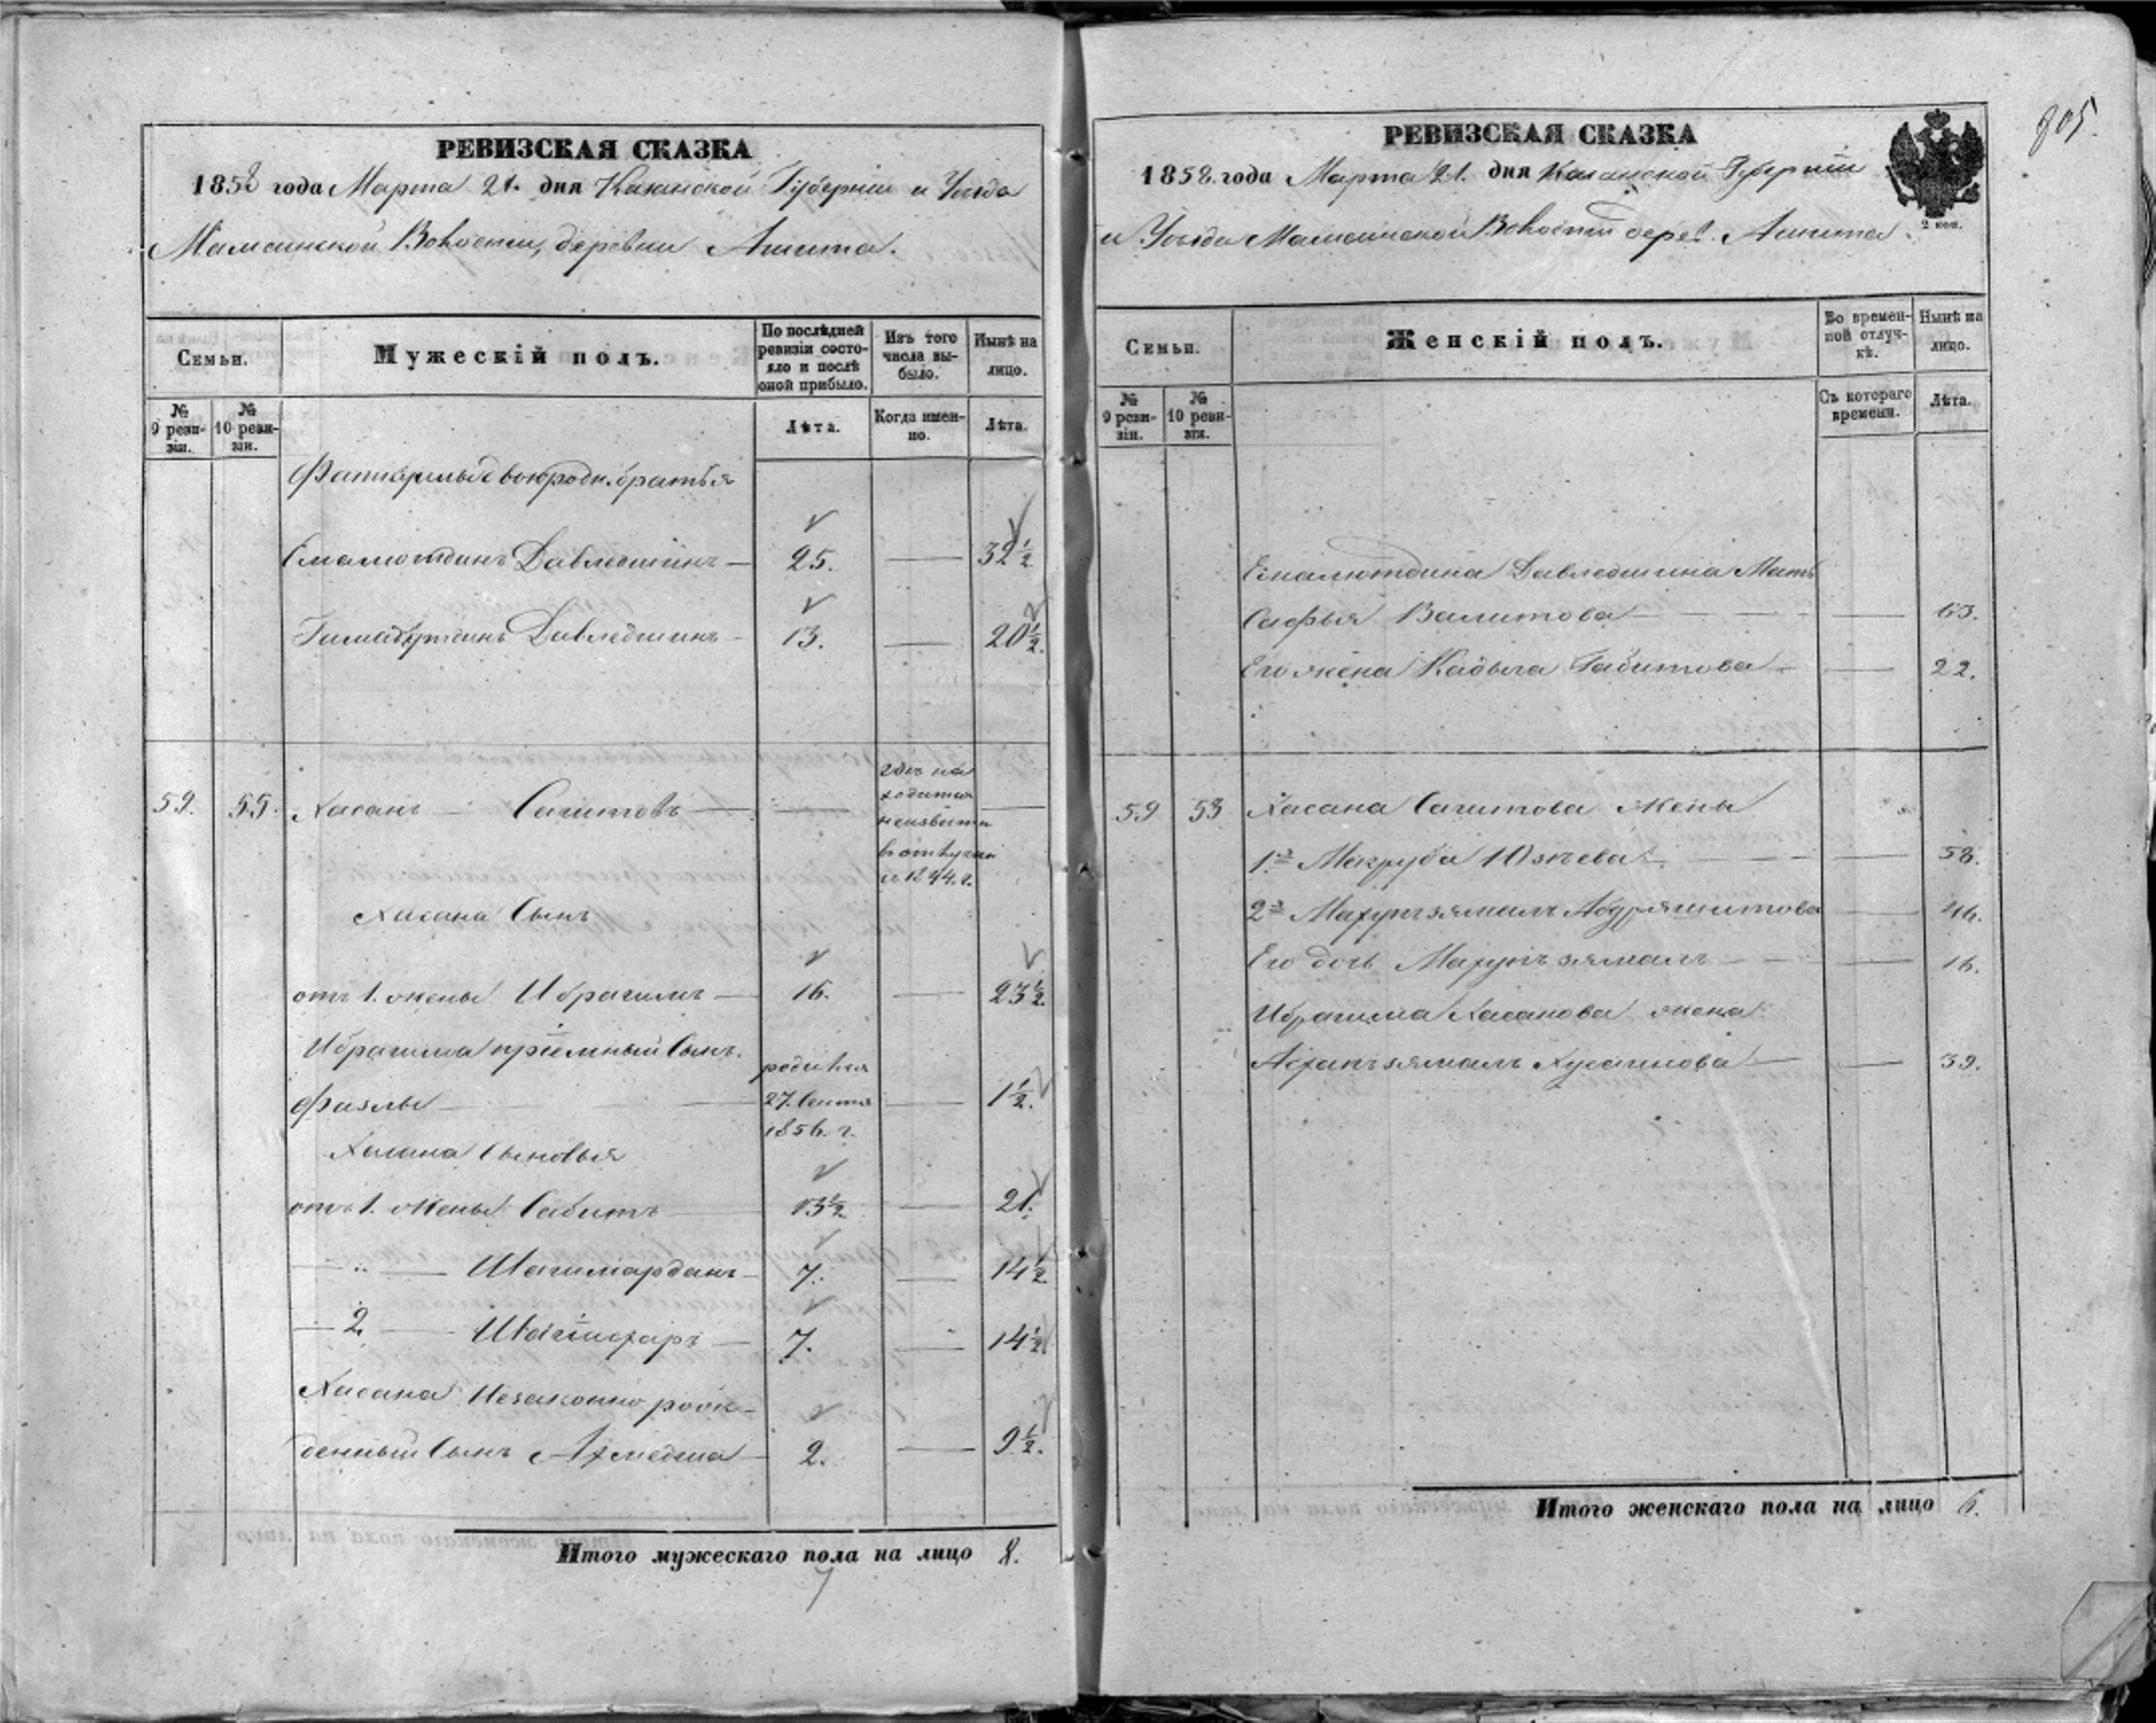 РЕВИЗСКАЯ СКАЗКА
1858 года Марта 21. дня Казанской Губерніи и Уѣзда
Мамсинской Волости, деревни Ашита.
Семьи.
Мужескій полъ.
По послѣдней ревизіи состояло и послѣ оной прибыло.
Изъ того числа выбыло.
Нынѣ на лицо.
№ 9 ревизіи.
№ 10 ревизіи.
Лѣта.
Когда именно.
Лѣта.
двоюродн. братья
Емалютдинъ Давледшинъ — 25. — 32 1/2
Давледшинъ — 13. — 20 1/2.
59. 55. Хасанъ — Сагитовъ — — гдѣ на —
ходится
неизвѣстно
въ отлучки
съ 1844. г.
Хасана Сынъ
отъ 1. жены Ибрагимъ — 16. — 23 1/2.
Ибрагима пріемный Сынъ.
родился
Фазлы — 27. Сентя — 1 1/2.
1856. г.
Хасана Сыновья
отъ 1. жены Сабитъ — 13 1/2 — 21.
— „ — Шагимарданъ — 7. — 14 1/2
— 2. — — 7. — 14 1/2
Хасана Незаконно рож-
денный Сынъ Ахмедша — 2. — 9 1/2.
Итого мужескаго пола на лицо 8.
7
805.
РЕВИЗСКАЯ СКАЗКА
2 коп.
1858. года Марта 21. дня Казанской Губерніи
и Уѣзда Мамсинской Волости дерев. Ашита.
Семьи.
Женскій полъ.
Во временной отлучкѣ.
Нынѣ на лицо.
№ 9 ревизіи.
№ 10 ревизіи.
Съ котораго времени.
Лѣта.
Емалютдина Давледшина Мать
Сафья Валитова — — 63.
Его жена Кадыга Габитова — — 22.
59 53 Хасана Сагитова жены
1.я Магруба Юзѣева — — 58.
2.я Махупъзямалъ Абдряшитова — 46.
Его дочь Махупъзямалъ — — 16.
Ибрагима Хасанова жена
Хусаинова — — 39.
Итого женскаго пола на лицо 6.